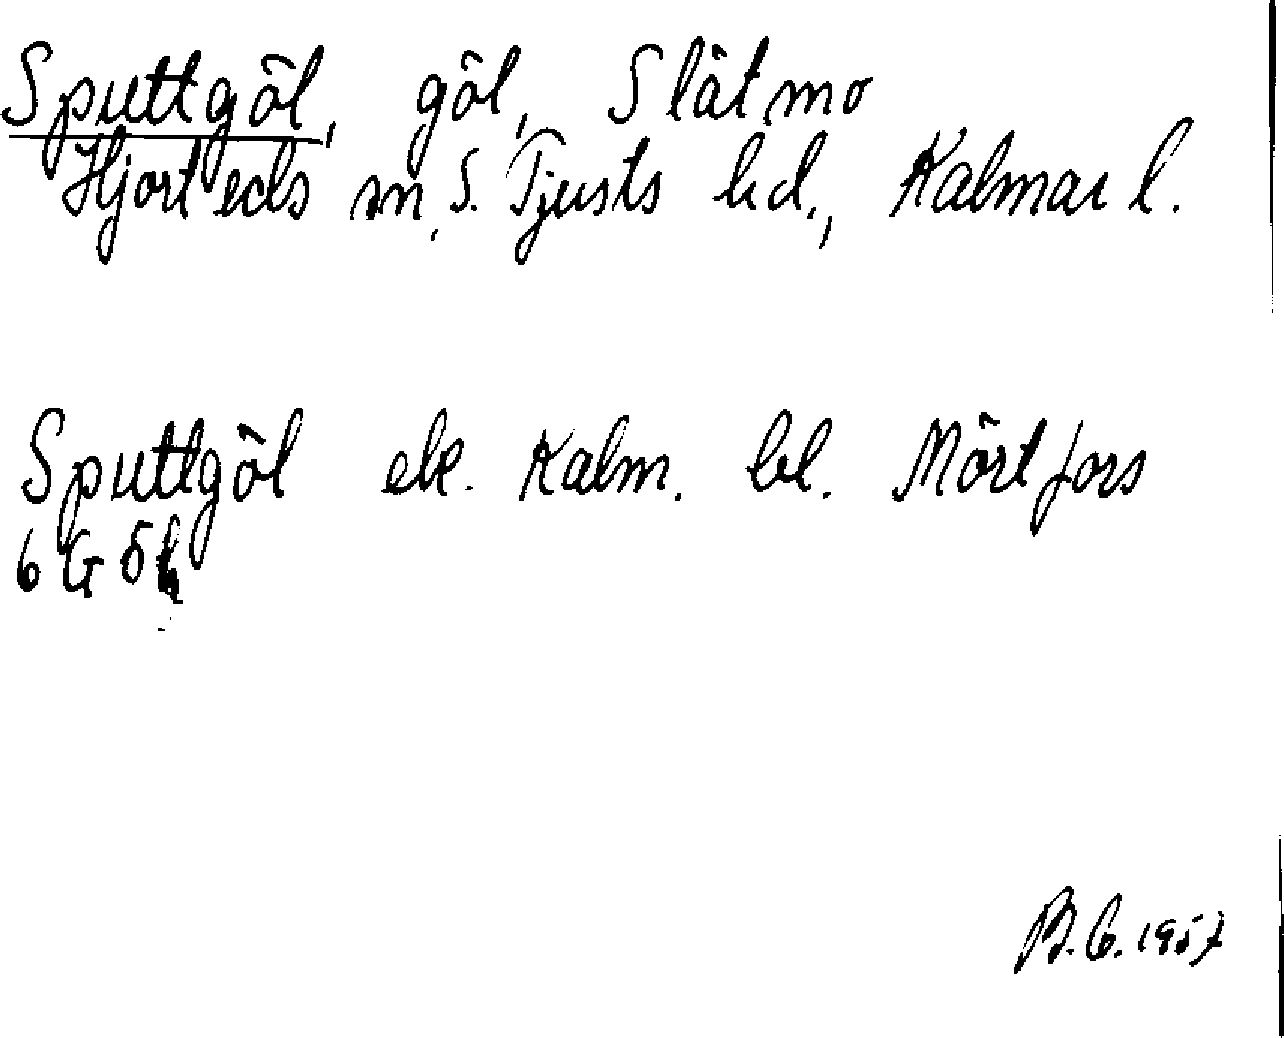 Sputtgöl, göl, Slätmo
Hjorteds sn, S. Tjusts hd., Kalmar l.
Sputtgöl ek. Kalm. bl. Mörtfors
6 G 5 h
B. G. 1957